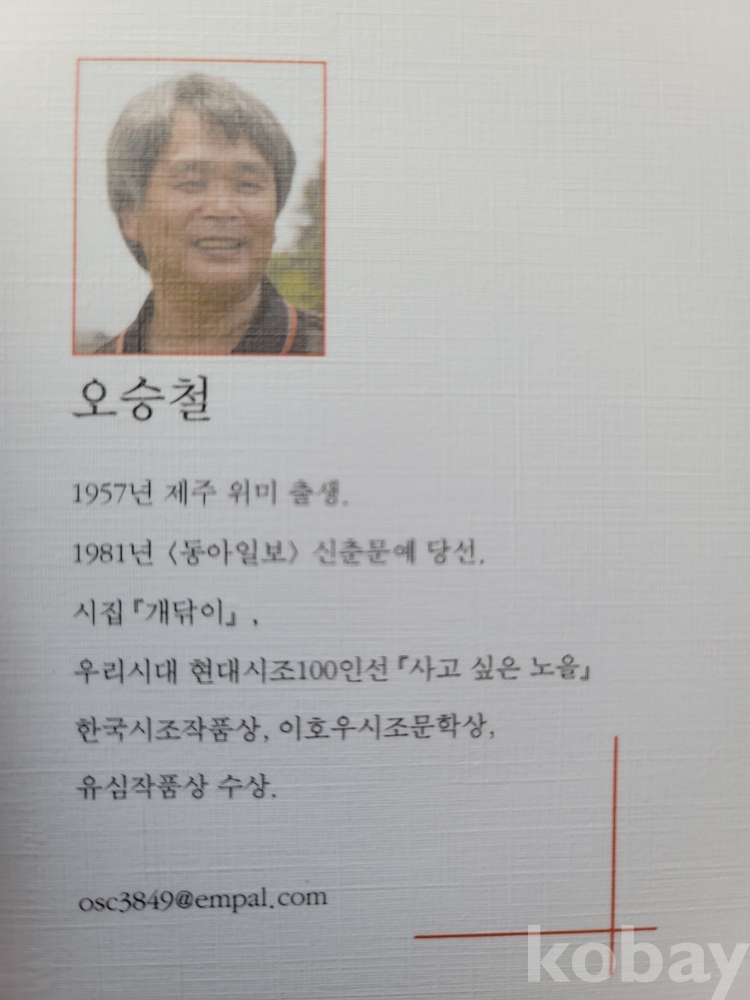 오승철
1957년 제주 위미 출생.
1981년 〈동아일보〉 신춘문예 당선.
시집 『개닦이』,
우리시대 현대시조100인선 『사고 싶은 노을』
한국시조작품상, 이호우시조문학상,
유심작품상 수상.
osc3849@empal.com
kobay